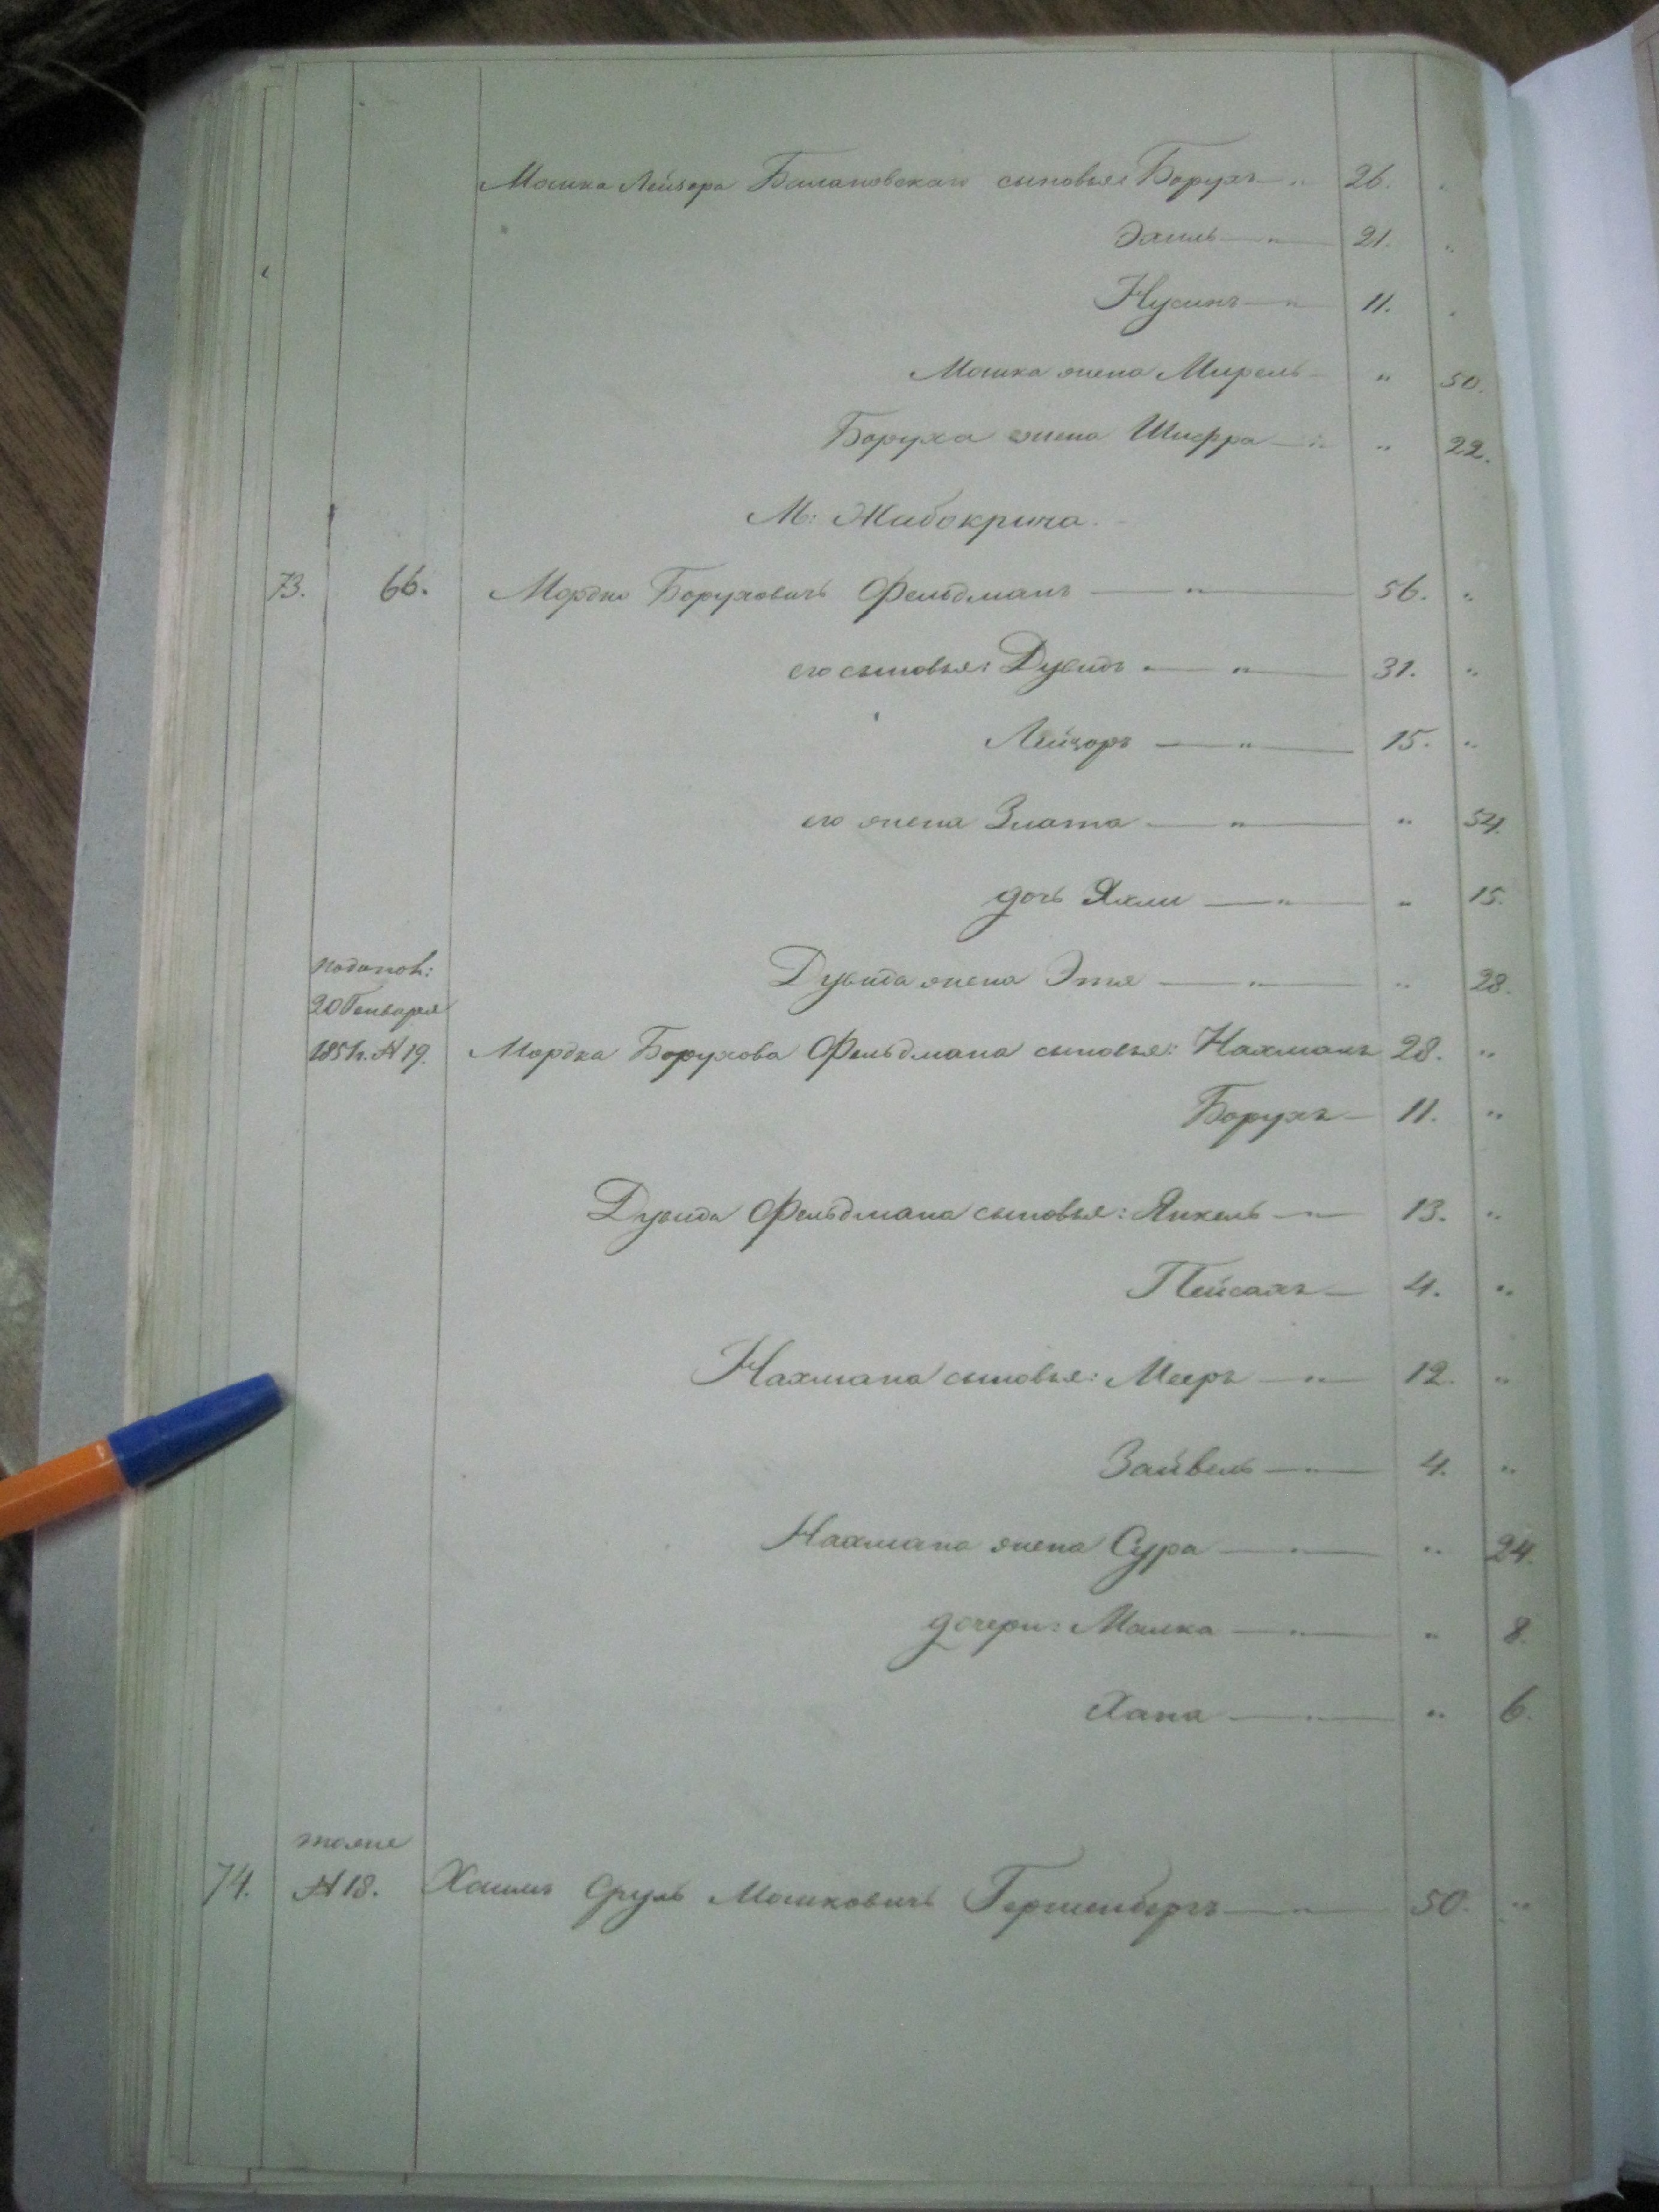 Мошка Лейзора Балановскаго сыновья: Борухъ — " 26. "
Эхиль — " — 21. "
Нусинъ — " 11. "
Мошка жена Мирель — " 50.
Боруха жена Шифра — " " 22.
М: Жабокрича.
73. 66. Мордко Боруховичъ Фельдманъ — " — 56. "
его сыновья: Дувидъ — " — 31. "
Лейзоръ — " — 15. "
его жена Злата — " — " 54.
дочь Яхли — " — " 15.
Дувида жена Этя — " — " 28.
20 Генваря
1851 г. № 19. Мордка Борухова Фельдмана сыновья: Нахманъ 28. "
Борухъ — 11. "
Дувида Фельдмана сыновья: Янкель — " — 13. "
Пейсахъ — 4. "
Нахмана сыновья: Мееръ — " — 12. "
Зайвель — " — 4. "
Нахмана жена Сура — " — " 24.
дочери: Малка — " — " 8.
Хана — " — " 6.
тоже
74. № 18. Хаимъ Сруль Мошковичъ Гершенбергъ — " — 50. "